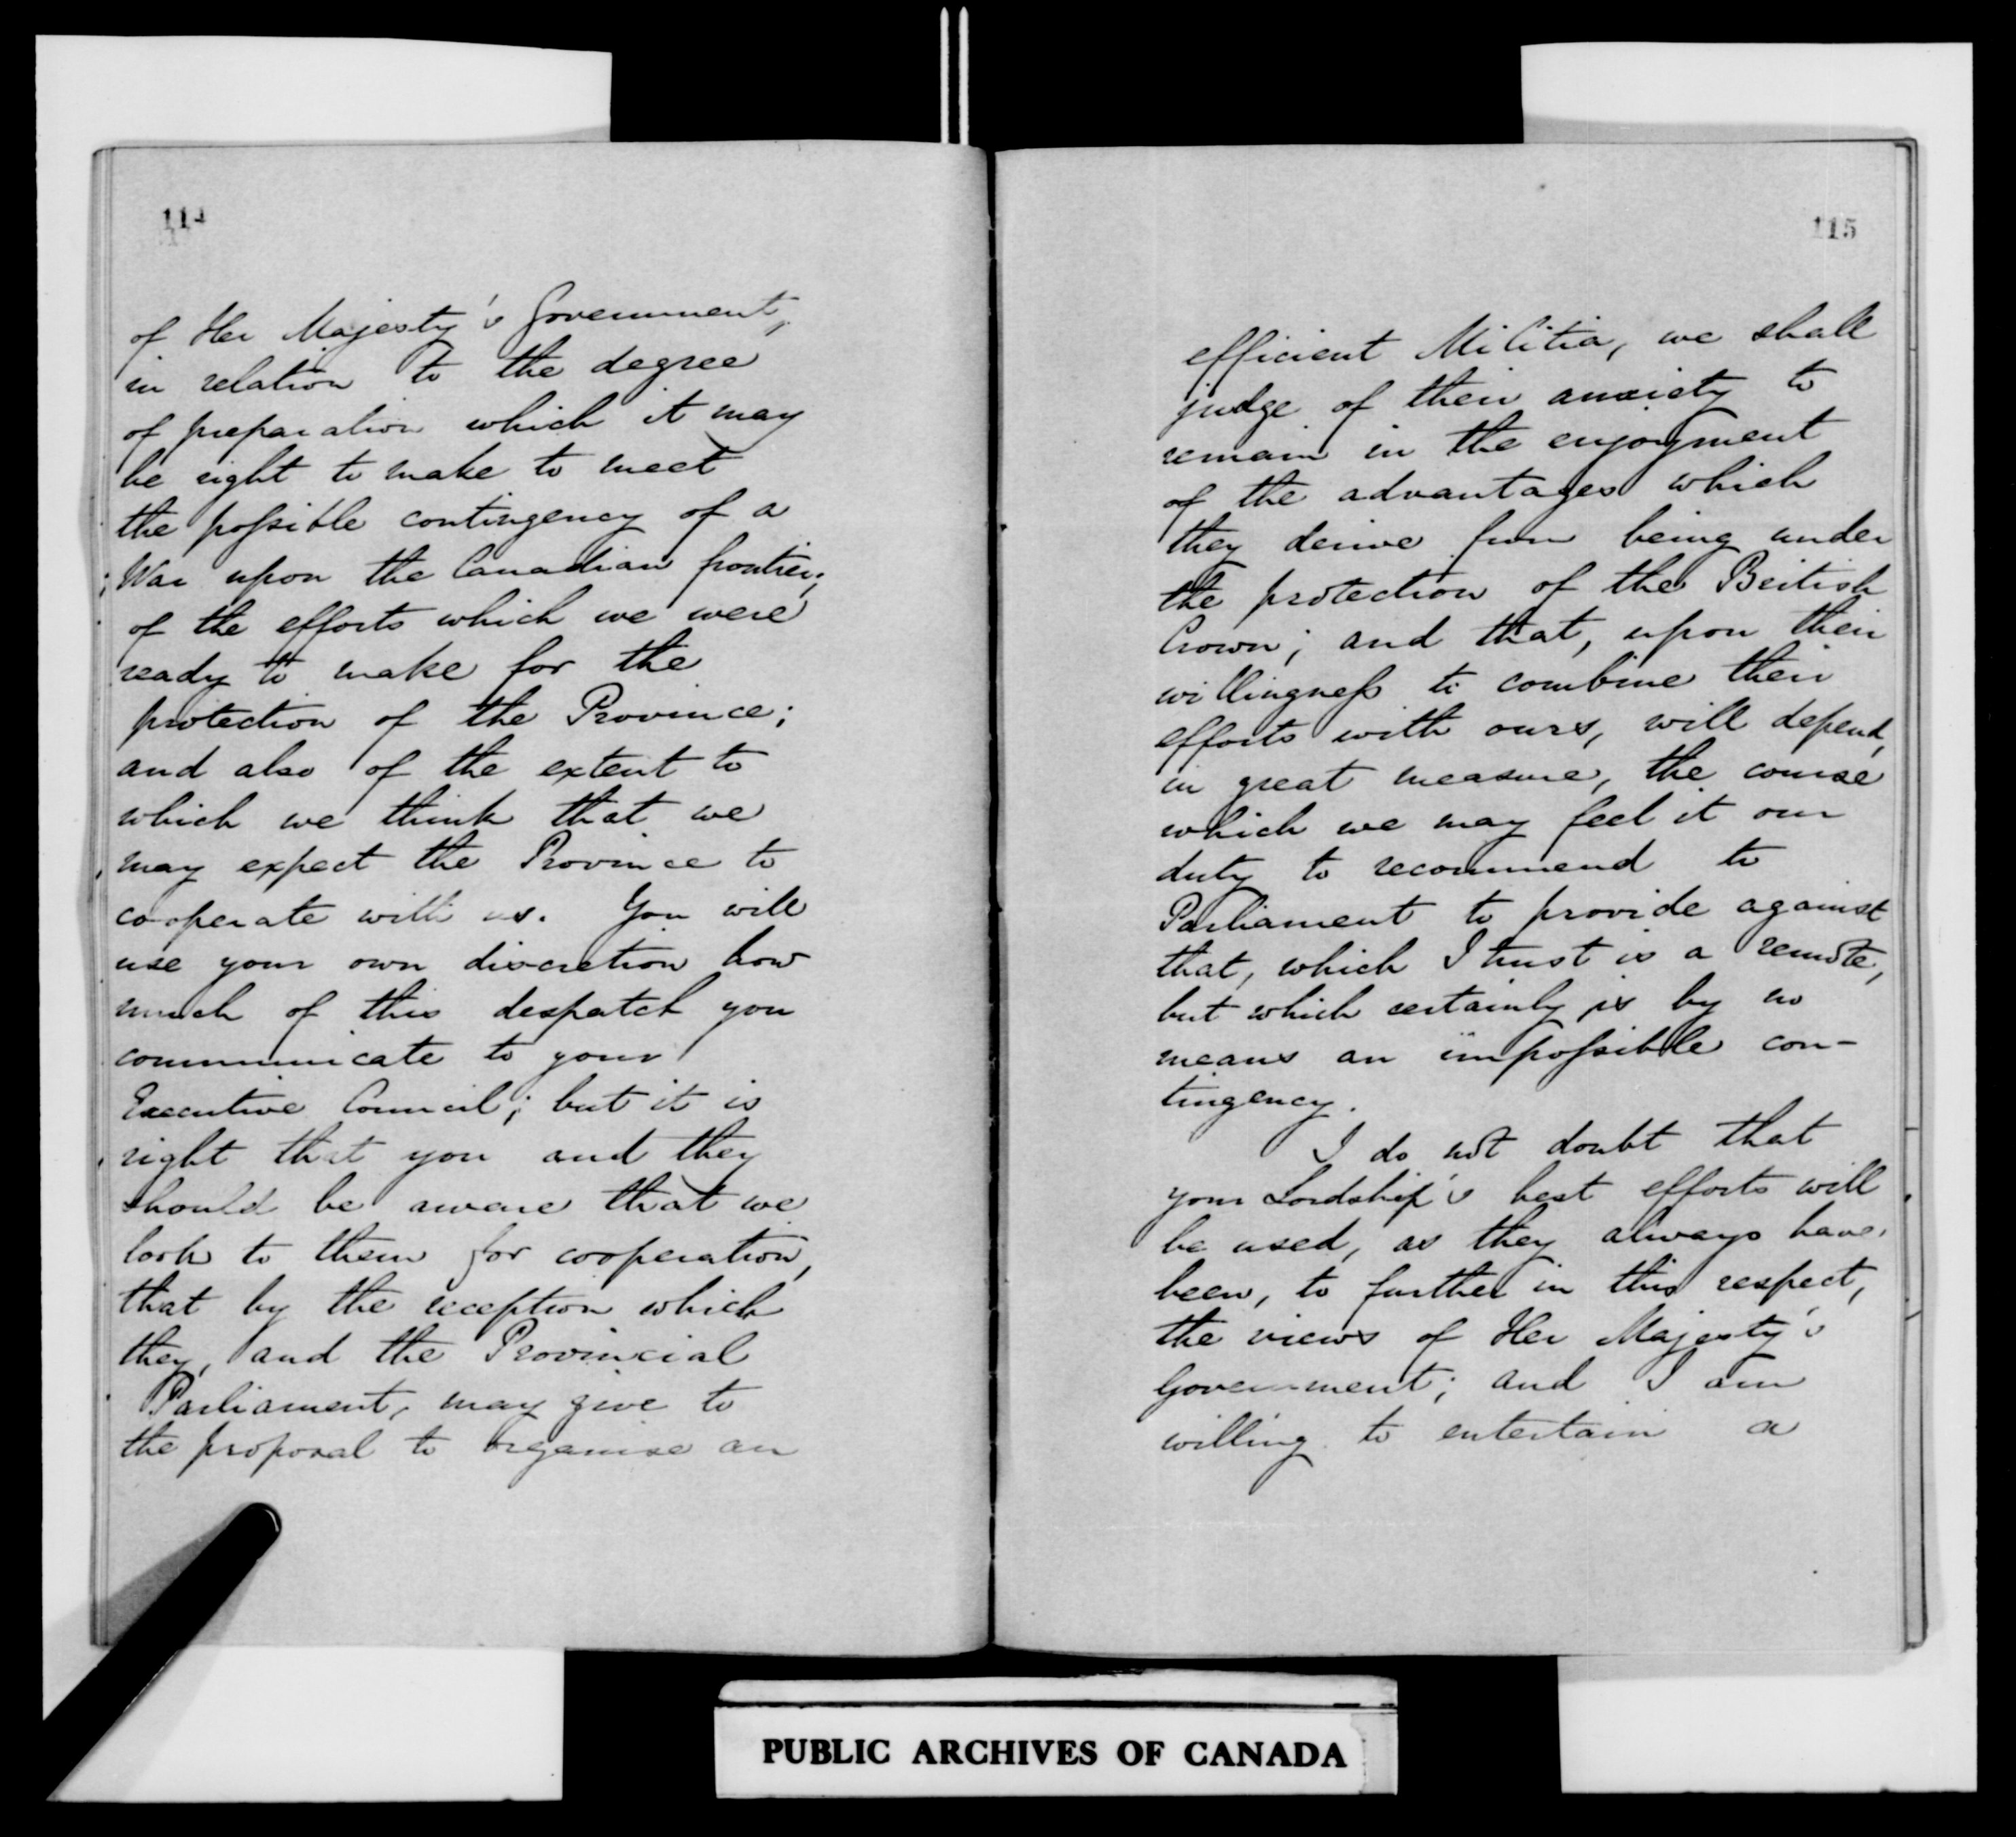 114
of Her Majesty's Government,
in relation to the degree
of preparation which it may
be right to make to meet
the possible contingency of a
War upon the Canadian frontier;
of the efforts which we were
ready to make for the
protection of the Province;
and also of the extent to
which we think that we
may expect the Province to
co-operate with us. You will
use your own discretion how
much of this despatch you
communicate to your
Executive Council; but it is
right that you and they
should be aware that we
look to them for cooperation,
that by the reception which
they, and the Provincial
Parliament, may give to
the proposal to organise an
115
efficient Militia, we shall
judge of their anxiety to
remain in the enjoyment
of the advantages which
they derive from being under
the protection of the British
Crown; and that, upon their
willingness to combine their
efforts with ours, will depend,
in great measure, the course
which we may feel it our
duty to recommend to
Parliament to provide against
that, which I trust is a remote,
but which certainly is by no
means an impossible con-
tingency.
I do not doubt that
your Lordship's best efforts will
be used, as they always have
been, to further in this respect,
the views of Her Majesty's
Government; and I am
willing to entertain a
PUBLIC ARCHIVES OF CANADA